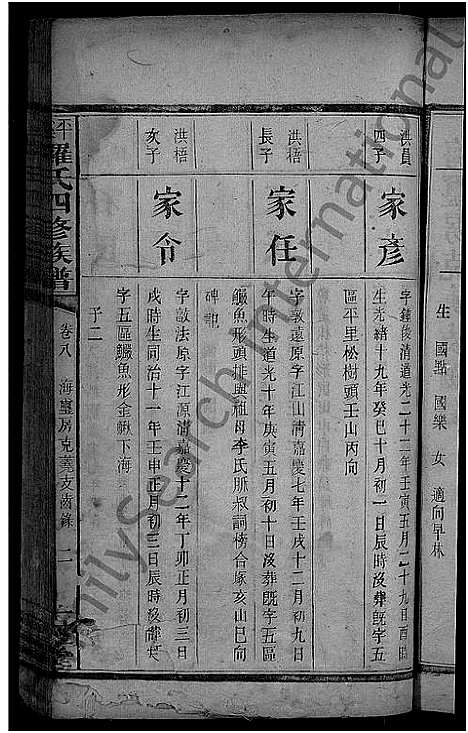 生 國點 國樂 女 適向早林
洪員
四子
家彥
字鏡俊清道光二十二年壬寅五月二十九日酉時
生光緒十九年癸巳十月初一日辰時沒葬既字五
區平里松樹頭壬山丙向
洪梧
長子
家任
字敦遠原字江山清嘉慶七年壬戌十二月初九日
午時生道光十年庚寅五月初十日沒葬既字五區
鱖魚形頭排與祖母李氏脈叔詞傍合塚亥山巳向
碑記
洪梧
次子
家令
字敦法原字江源清嘉慶十二年丁卯正月初三日
戌時生同治十一年壬申正月初三日辰時沒葬
字五區鱖魚形金鍬下海
子二
羅氏四修族譜
卷八 海璽房克 支齒錄 二
FamilySearch International